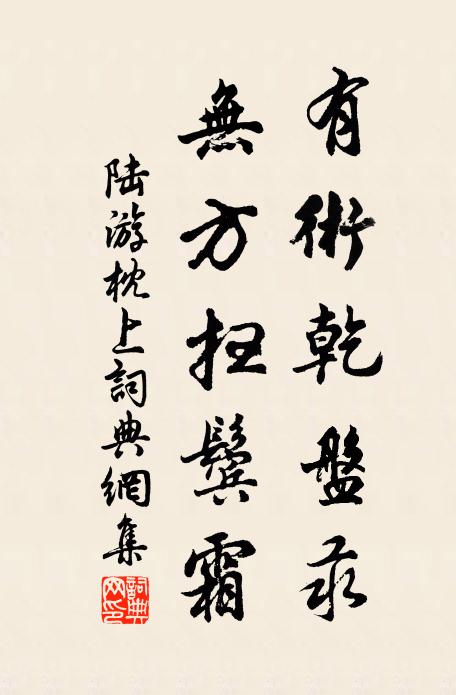 有術乾盤汞
無方掃鬢霜
陆游枕上詞典網集
詞典网印